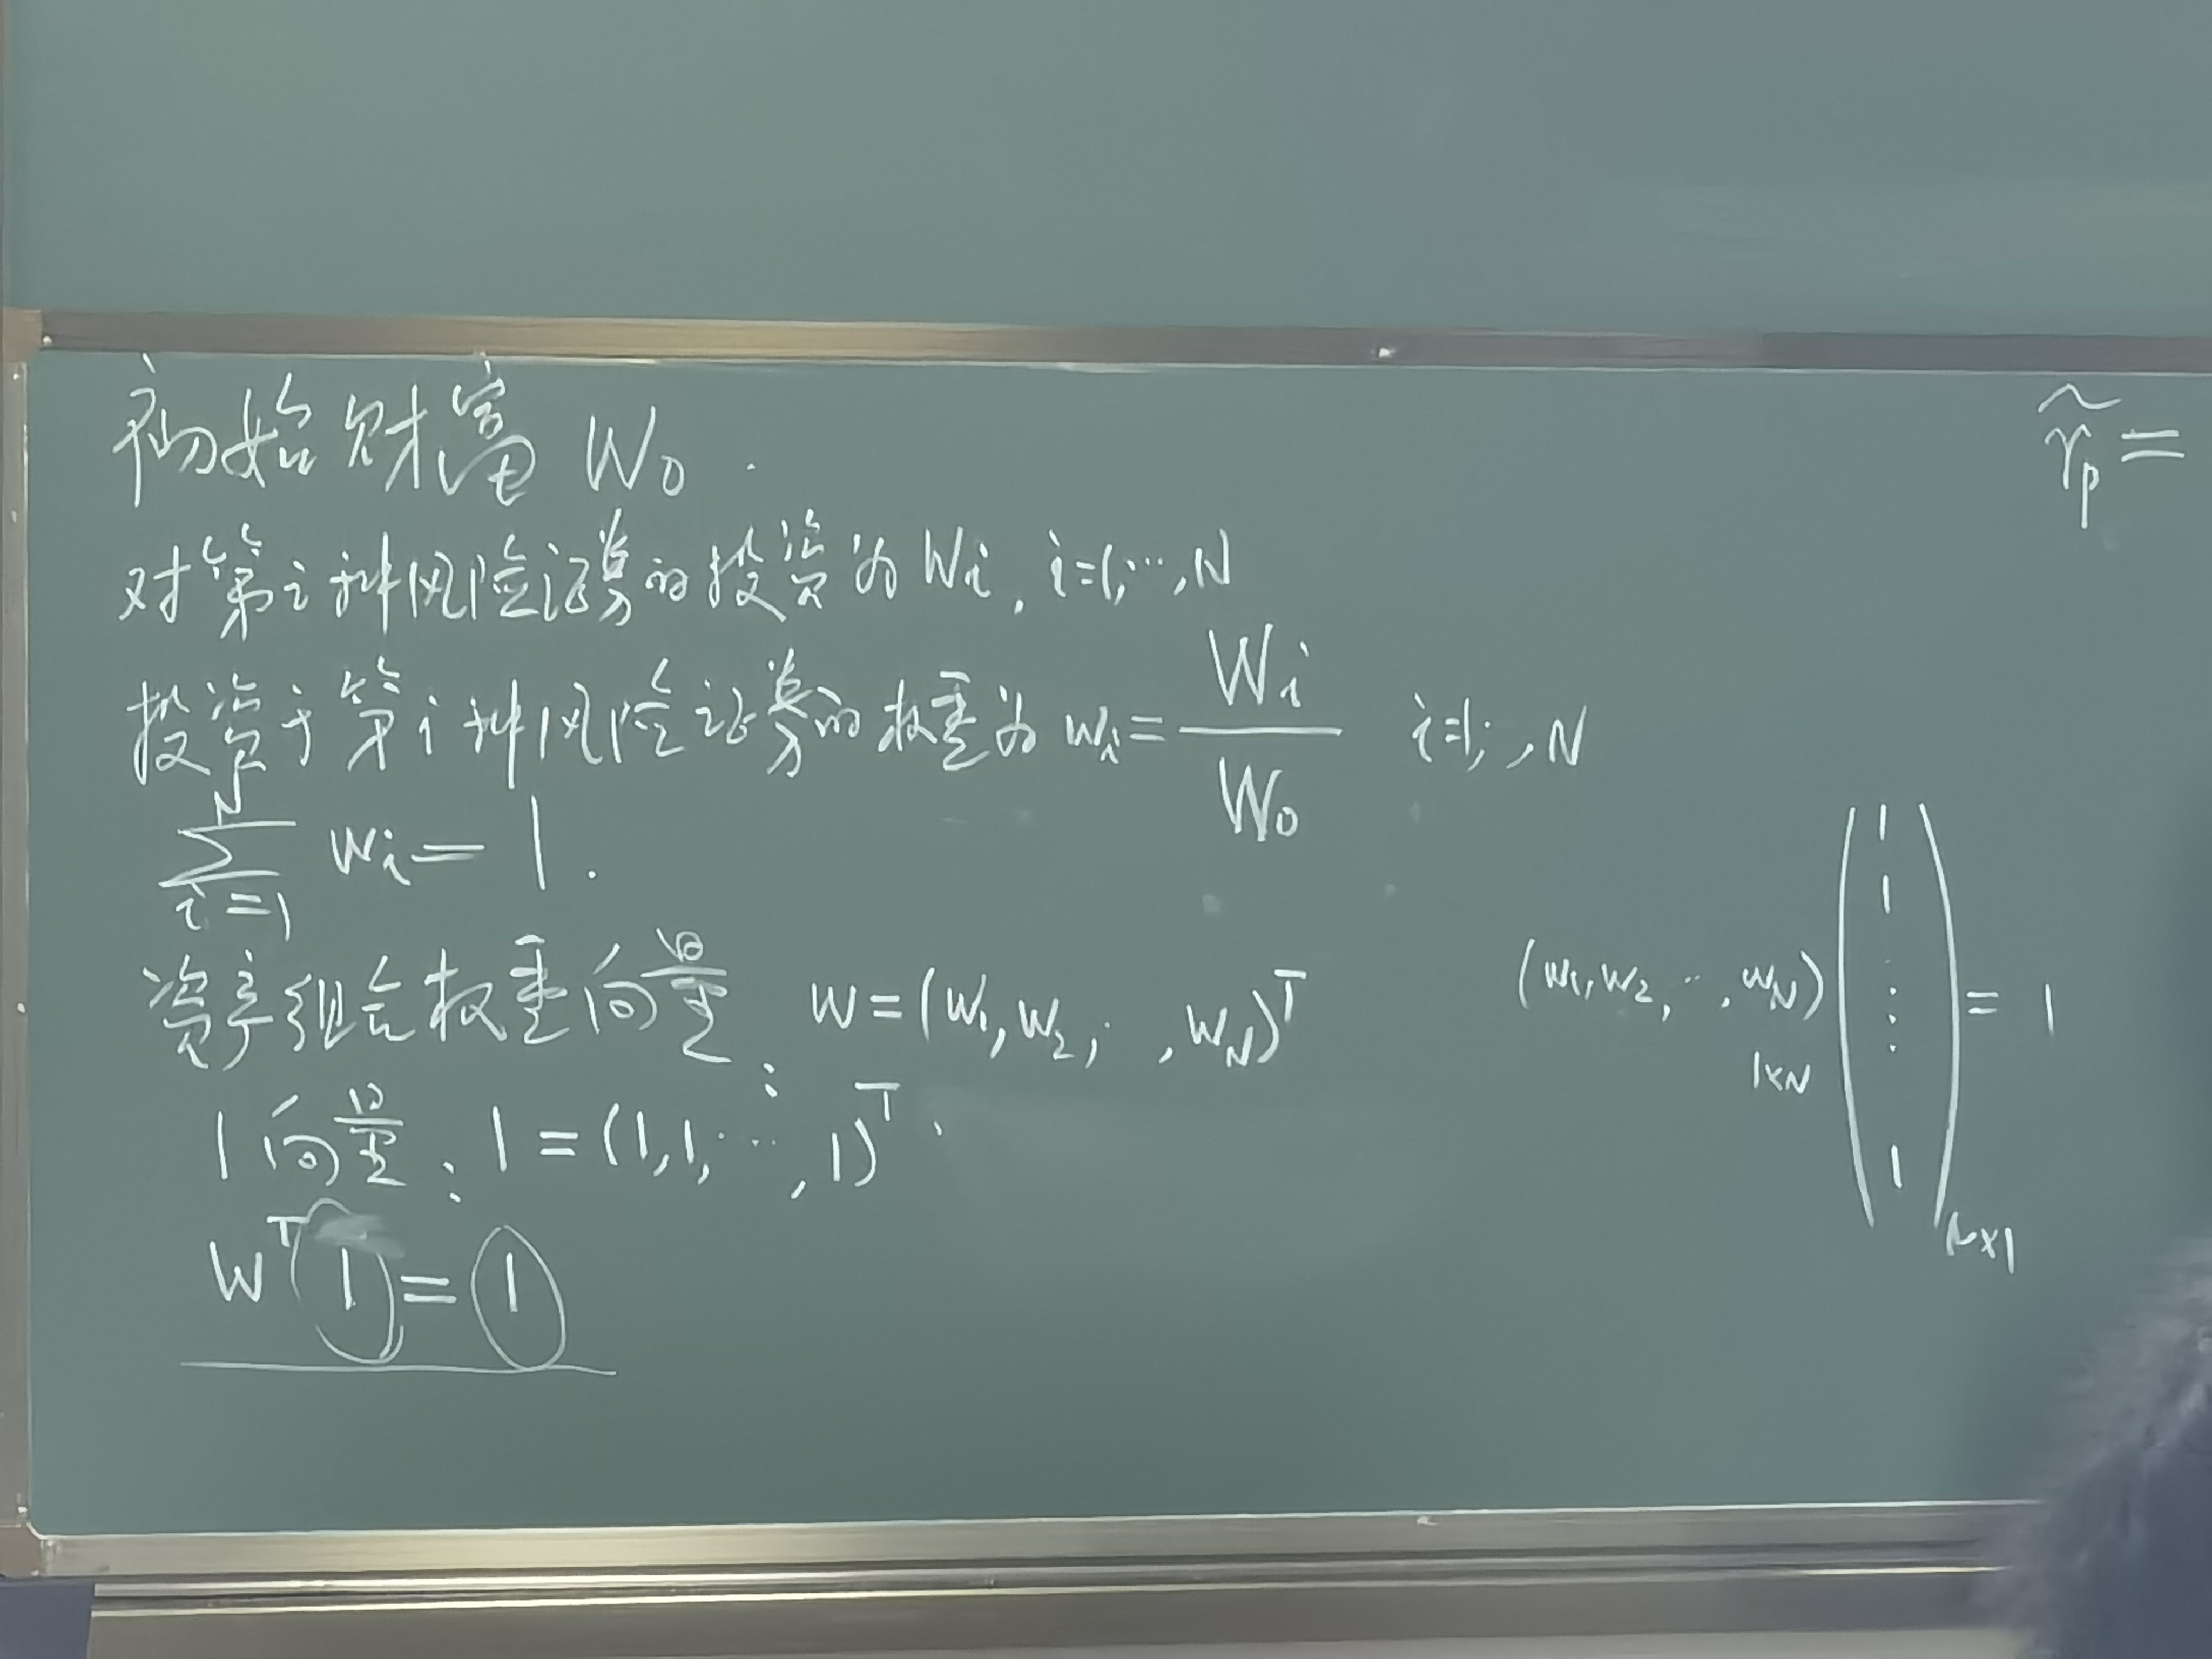 初始财富 W₀.
对第i种风险证券的投资为 Wᵢ, i=1,…,N
投资于第i种风险证券的权重为 wᵢ = Wᵢ/W₀  i=1,…,N
∑ᵢ₌₁ᴺ wᵢ = 1.
资产组合权重向量: w = (w₁, w₂, …, w_N)ᵀ
1向量: 1 = (1,1,…,1)ᵀ.
wᵀ1 = 1
r̃ₚ =
(w₁, w₂, …, w_N)
1×N
(1 1 ⋮ 1) = 1
N×1